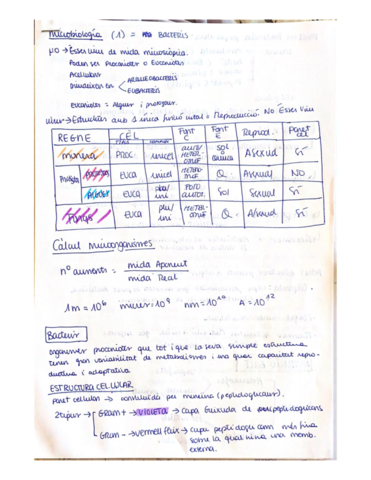 Microbiologia (1) = BACTERIS
MO → Ésser vius de mida microscòpica.
Poden ser Procariotes o Eucariotes
Acel·lulars
ARQUEOBACTERIS
Divideixen en
EUBACTERIS
eucariotes = Algues i protozous.
Virus → Estructures amb 1 única funció vital = Reproducció. NO Ésser Viu
REGNE CÈL Font C Font E Reprod. Paret cel
monera PROC. unicel AUTO/HETEROTROF SOL o QUÍMICA Asexual SÍ
Protista EUCA unicel HETEROTROF Q. Asexual NO
EUCA plu/uni FOTO AUTOTR. SOL Sexual SÍ
Fongs EUCA plu/uni HETEROTROF Q. Asexual SÍ
Càlcul microorganismes
nº augments = mida Aparent
mida Real
1m = 10⁶ micres 10⁹ nm = 10¹⁰ A = 10¹²
Bacteris
organismes procariotes que tot i que la seva simple estructura
tenen gran variabilitat de metabolismes i una gran capacitat repro-
ductiva i adaptativa
ESTRUCTURA CEL·LULAR
Paret cel·lular → constituïda per mureïna (peptidoglicans).
2 tipus → GRAM + → VIOLETA → capa Gruixuda de peptidoglicans
GRAM - → vermell fluix → capa peptidoglicans més fina
sobre la qual hi ha una memb.
externa.